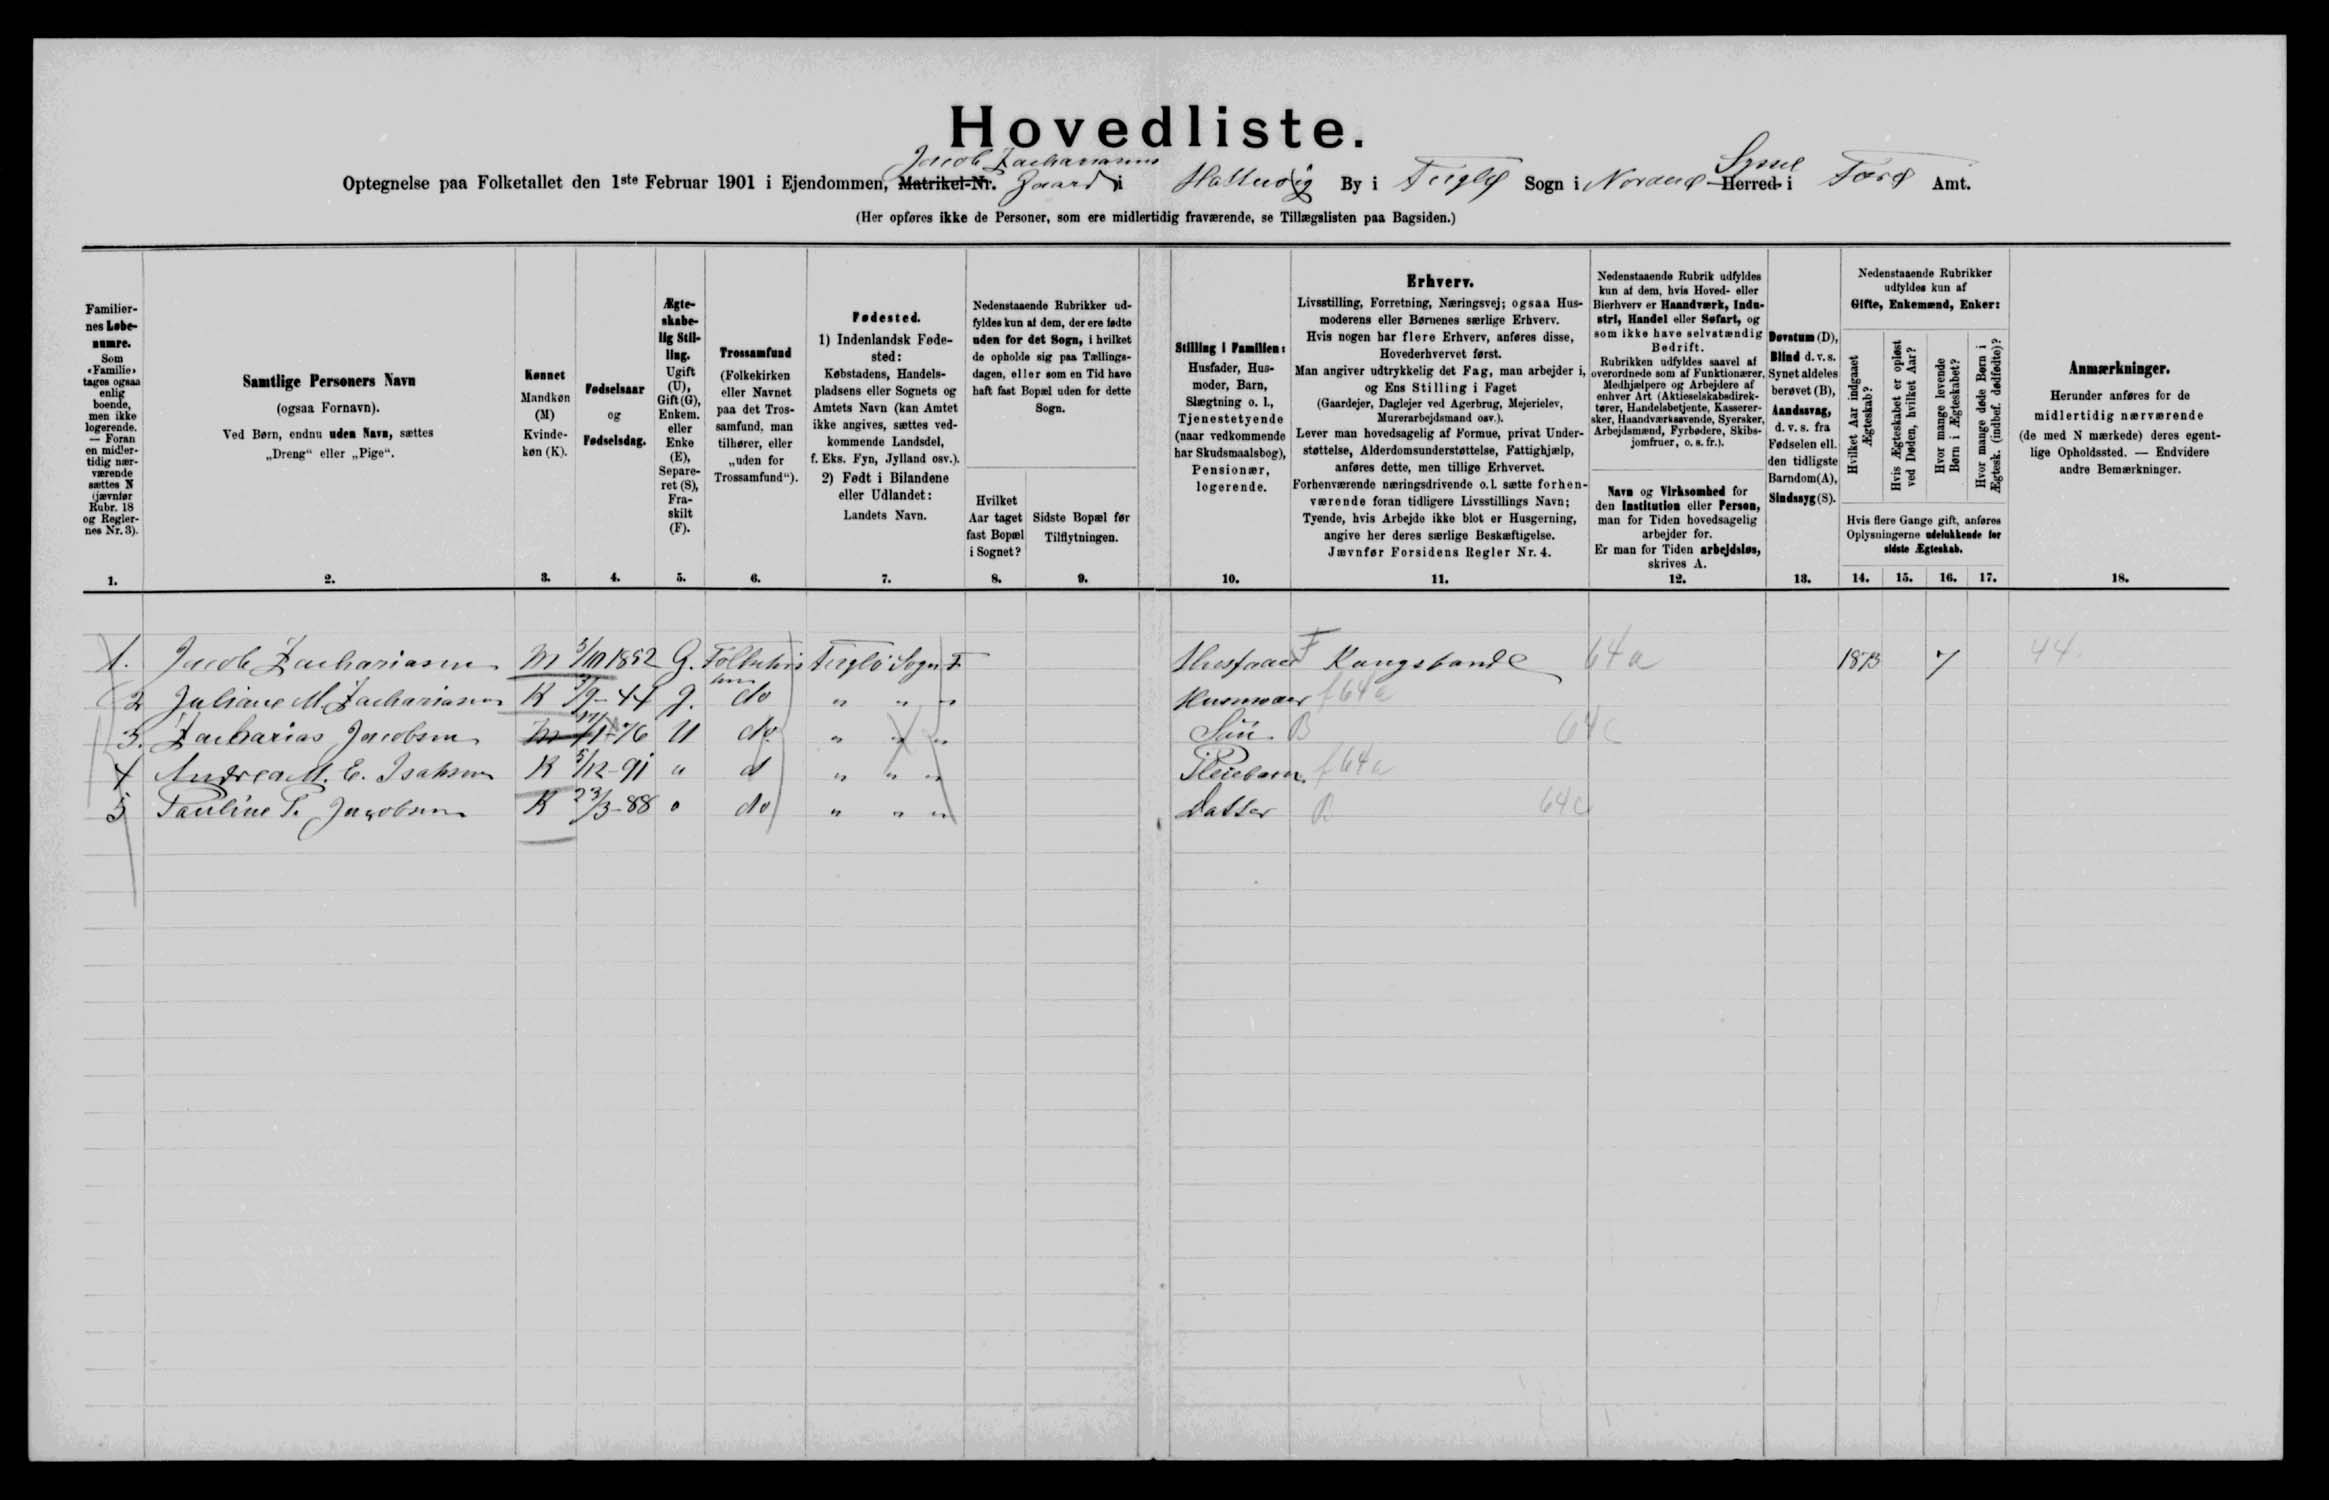 Hovedliste.
Optegnelse paa Folketallet den 1ste Februar 1901 i Ejendommen, Matrikel-Nr. Jacob Zachariasens Gaard i Hattervig By i Fuglø Sogn i Norderø Herred Syssel i Færø Amt.
(Her opføres ikke de Personer, som ere midlertidig fraværende, se Tillægslisten paa Bagsiden.)
Familiernes Løbenumre.
Som «Familie» tages ogsaa enlig boende, men ikke logerende. — Foran en midlertidig nærværende sættes N (jævnfør Rubr. 18 og Reglernes Nr. 3).
1.
Samtlige Personers Navn
(ogsaa Fornavn).
Ved Børn, endnu uden Navn, sættes
„Dreng“ eller „Pige“.
2.
Kønnet
Mandkøn (M)
Kvindekøn (K).
3.
Fødselsaar
og
Fødselsdag.
4.
Ægteskabelig Stilling.
Ugift (U), Gift (G), Enkem. eller Enke (E), Separeret (S), Fraskilt (F).
5.
Trossamfund
(Folkekirken eller Navnet paa det Trossamfund, man tilhører, eller „uden for Trossamfund“).
6.
Fødested.
1) Indenlandsk Fødested:
Købstadens, Handelspladsens eller Sognets og Amtets Navn (kan Amtet ikke angives, sættes vedkommende Landsdel, f. Eks. Fyn, Jylland osv.).
2) Født i Bilandene eller Udlandet:
Landets Navn.
7.
Nedenstaaende Rubrikker udfyldes kun af dem, der ere fødte uden for det Sogn, i hvilket de opholde sig paa Tællingsdagen, eller som en Tid have haft fast Bopæl uden for dette Sogn.
Hvilket Aar taget fast Bopæl i Sognet?
8.
Sidste Bopæl før Tilflytningen.
9.
Stilling i Familien:
Husfader, Husmoder, Barn, Slægtning o. l., Tjenestetyende (naar vedkommende har Skudsmaalsbog), Pensionær, logerende.
10.
Erhverv.
Livsstilling, Forretning, Næringsvej; ogsaa Husmoderens eller Børnenes særlige Erhverv.
Hvis nogen har flere Erhverv, anføres disse, Hovederhvervet først.
Man angiver udtrykkelig det Fag, man arbejder i, og Ens Stilling i Faget
(Gaardejer, Daglejer ved Agerbrug, Mejerielev, Murerarbejdsmand osv.).
Lever man hovedsagelig af Formue, privat Understøttelse, Alderdomsunderstøttelse, Fattighjælp, anføres dette, men tillige Erhvervet.
Forhenværende næringsdrivende o. l. sætte forhenværende foran tidligere Livsstillings Navn;
Tyende, hvis Arbejde ikke blot er Husgerning, angive her deres særlige Beskæftigelse.
Jævnfør Forsidens Regler Nr. 4.
11.
Nedenstaaende Rubrik udfyldes kun af dem, hvis Hoved- eller Bierhverv er Haandværk, Industri, Handel eller Søfart, og som ikke have selvstændig Bedrift.
Rubrikken udfyldes saavel af overordnede som af Funktionærer, Medhjælpere og Arbejdere af enhver Art (Aktieselskabsdirektører, Handelsbetjente, Kasserersker, Haandværkssvende, Syersker, Arbejdsmænd, Fyrbødere, Skibsjomfruer, o. s. fr.).
Navn og Virksomhed for den Institution eller Person, man for Tiden hovedsagelig arbejder for.
Er man for Tiden arbejdsløs, skrives A.
12.
Døvstum (D), Blind d. v. s. Synet aldeles berøvet (B), Aandssvag, d. v. s. fra Fødselen ell. den tidligste Barndom (A), Sindssyg (S).
13.
Nedenstaaende Rubrikker udfyldes kun af
Gifte, Enkemænd, Enker:
Hvilket Aar indgaaet Ægteskab?
Hvis Ægteskabet er opløst ved Døden, hvilket Aar?
Hvor mange levende Børn i Ægteskabet?
Hvor mange døde Børn i Ægtesk. (indbef. dødfødte)?
Hvis flere Gange gift, anføres Oplysningerne udelukkende for sidste Ægteskab.
14. 15. 16. 17.
Anmærkninger.
Herunder anføres for de midlertidig nærværende (de med N mærkede) deres egentlige Opholdssted. — Endvidere andre Bemærkninger.
18.
1. Jacob Zachariasen M 1852 G. Folkekirken Fuglø Sogn F Husfader F Kongsbonde 64a 1873 7 44
2 Juliane M. Zachariasen K 44 g. do " " " Husmoder f64a
3. Zacharias Jacobsen M 76 U do " " " Sön B 64c
4 Andrea M. E. Isaksen K 5/12-91 " d " " " Pleiebarn f64a
5 Pauline P. Jacobsen K 23/3-88 " do " " " Datter B 64c